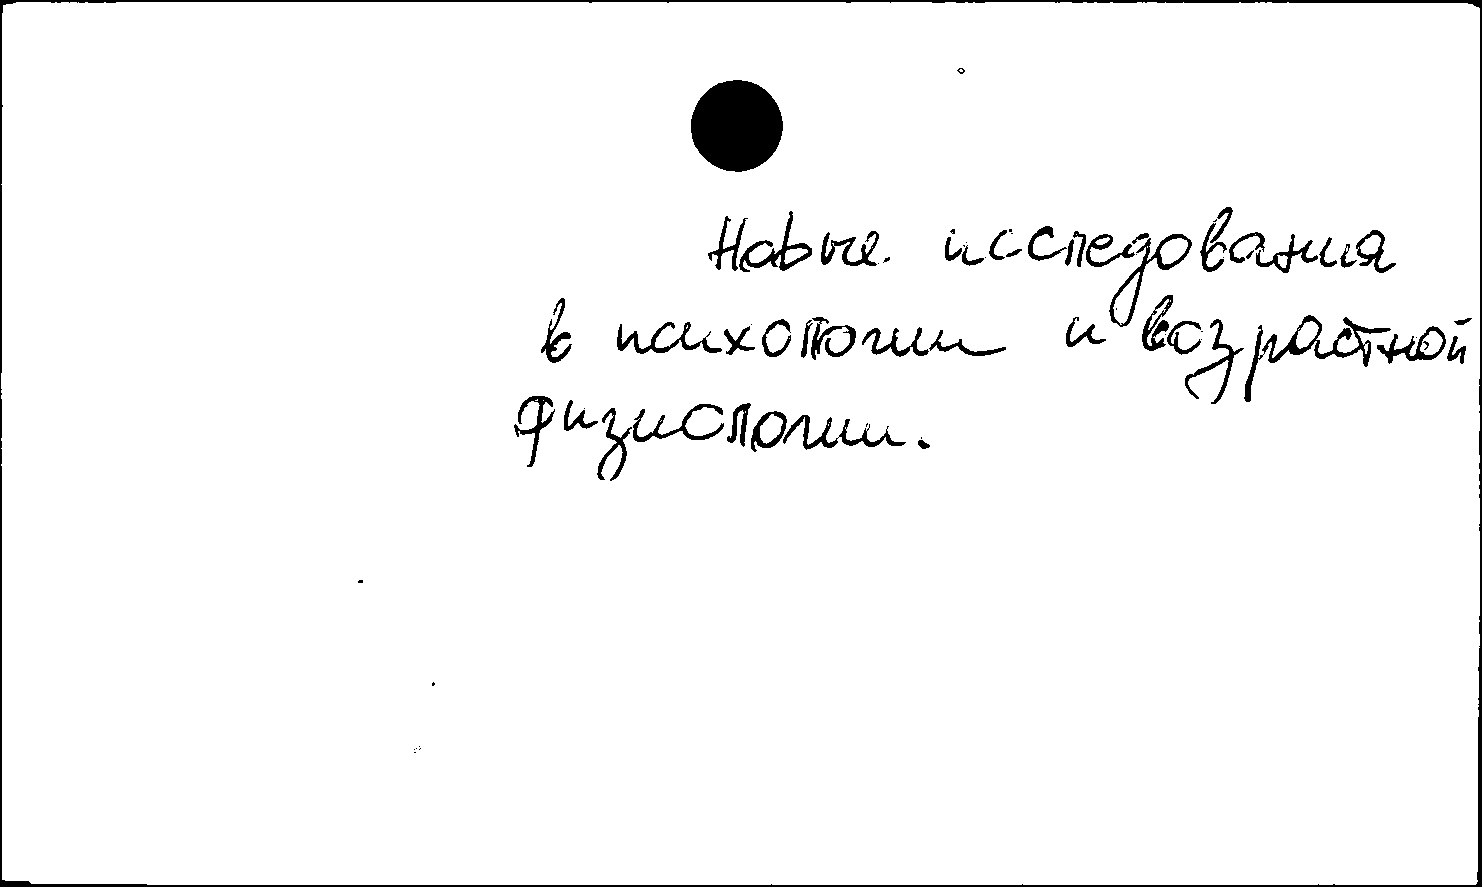 Новые исследования
в психологии и возрастной
физиологии.